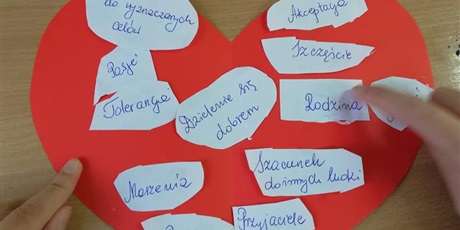 do wyznaczonych
celów
Akceptacja
Szczęście
Pasje
Tolerancja
Dzielenie się
dobrem
Rodzina
Marzenia
Szacunek
do innych ludzi
Przyjaciele